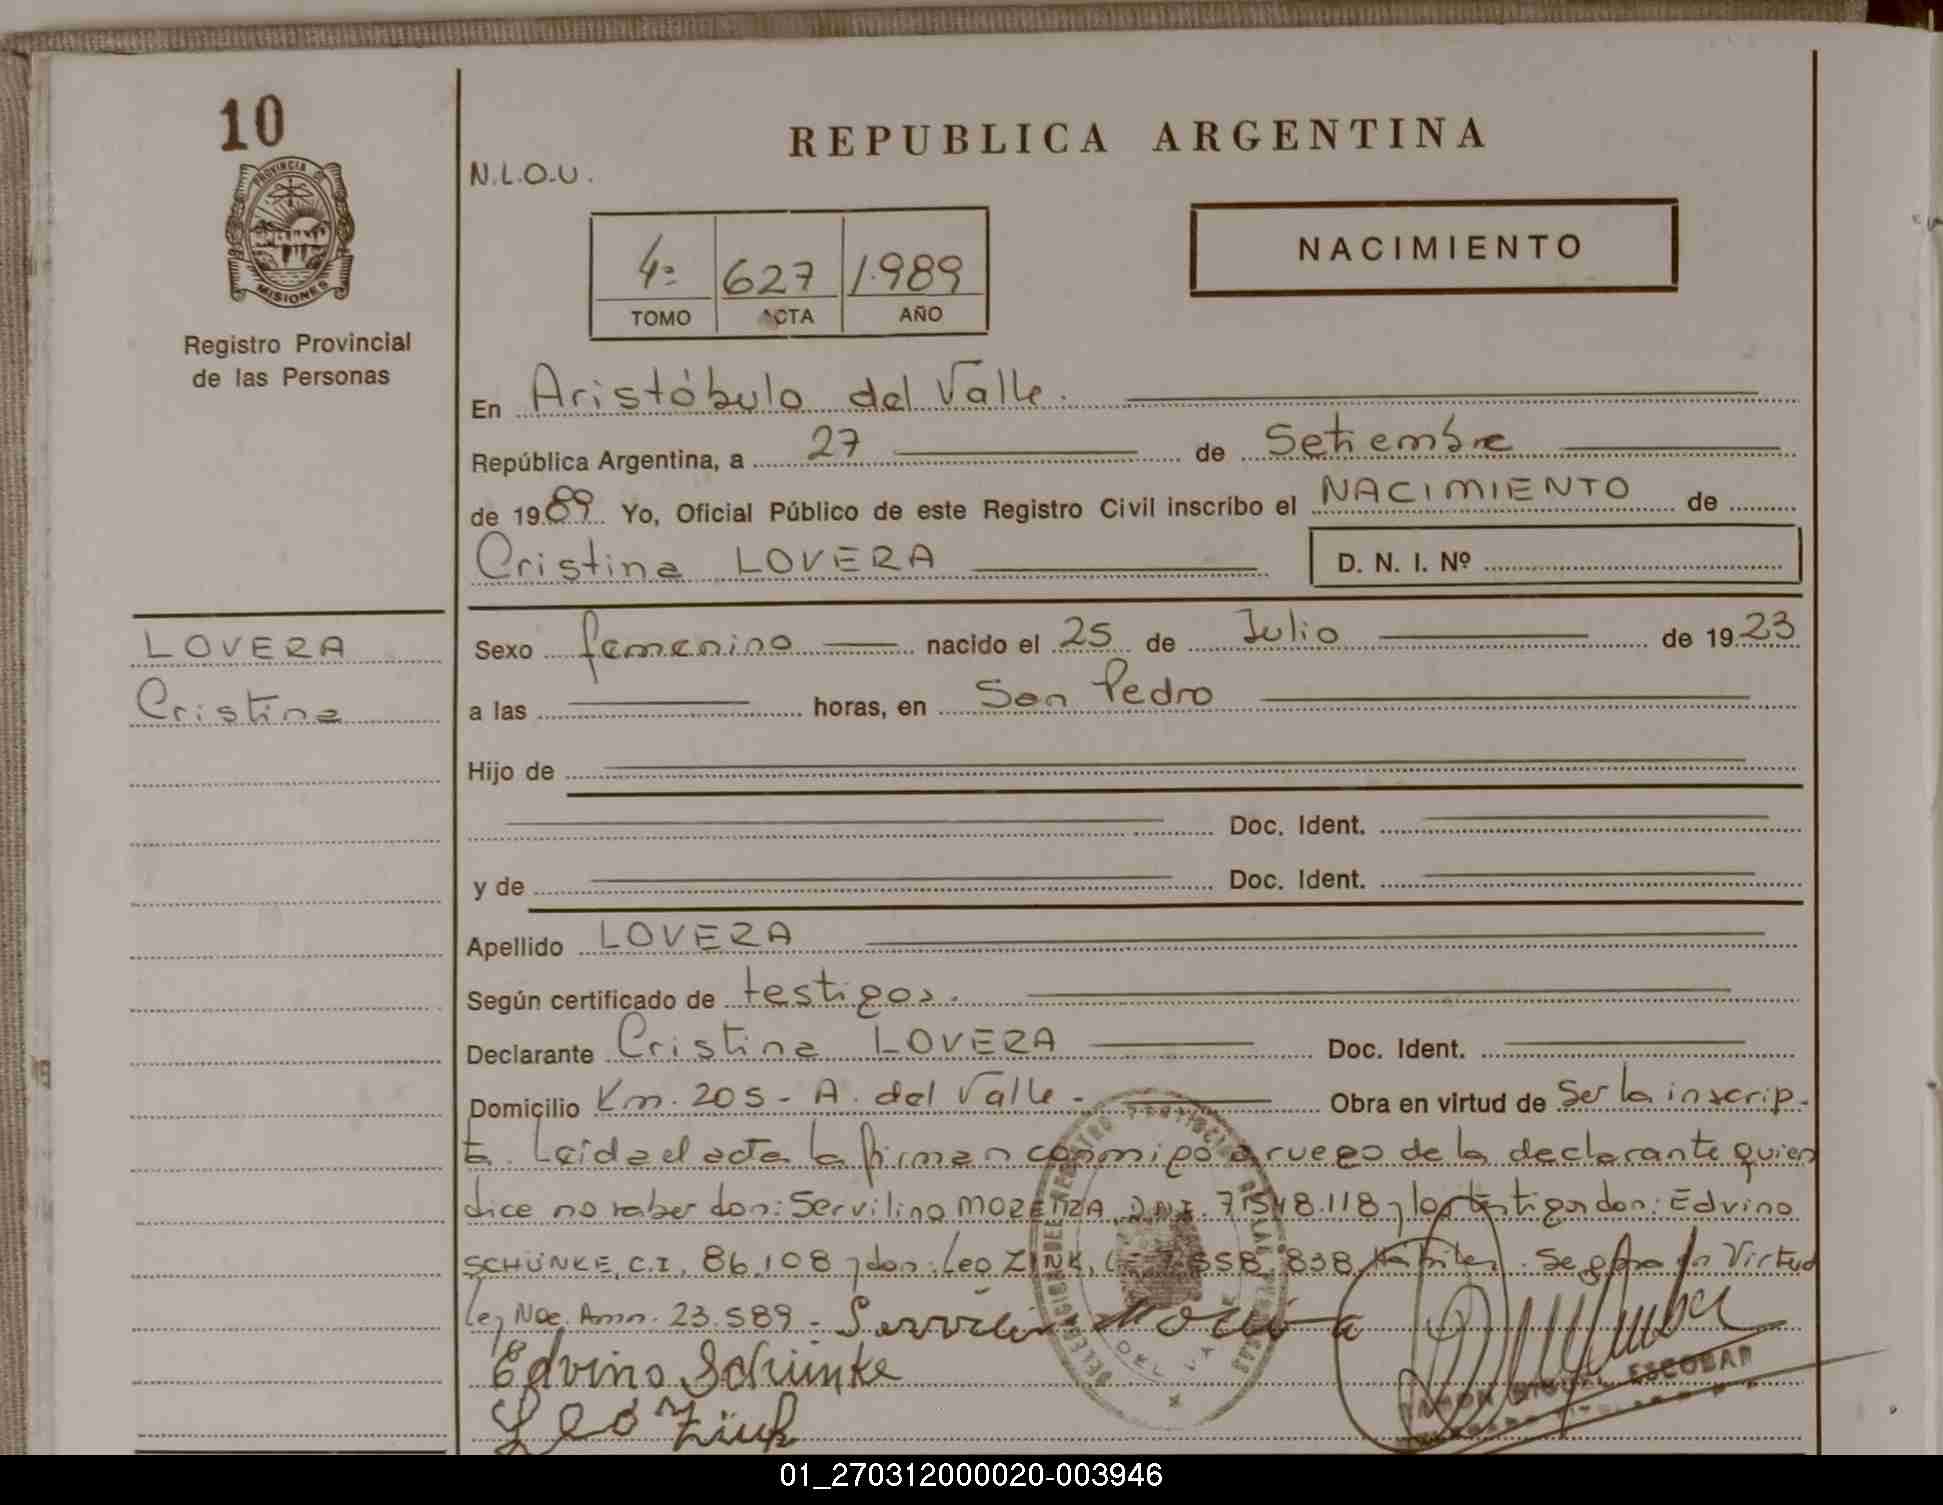 10
PROVINCIA DE
MISIONES
Registro Provincial
de las Personas
REPUBLICA ARGENTINA
N.L.O.U.
4º 627 1.989
TOMO ACTA AÑO
NACIMIENTO
En Aristóbulo del Valle.
República Argentina, a 27 de Setiembre
de 1989 Yo, Oficial Público de este Registro Civil inscribo el NACIMIENTO de
Cristina LOVERA
D. N. I. Nº
LOVERA
Cristina
Sexo femenino nacido el 25 de Julio de 1923
a las horas, en San Pedro
Hijo de
Doc. Ident.
y de Doc. Ident.
Apellido LOVERA
Según certificado de testigos.
Declarante Cristina LOVERA Doc. Ident.
Domicilio Km. 205 - A. del Valle - Obra en virtud de Ser la inscrip-
ta. Leída el acta la firman conmigo a ruego de la declarante quien
dice no saber don: Servilino DNI. 7.548.118 y los testigos don: Edvino
SCHÜNKE, C.I. 86.108 y don: Leo ZINK, 558.838 Hábiles. Se labra en Virtud
ley Nac. Amn. 23.589 -
Edvino Schünke
Leo Zink
RAMON MIGUEL ESCOBAR
01_270312000020-003946